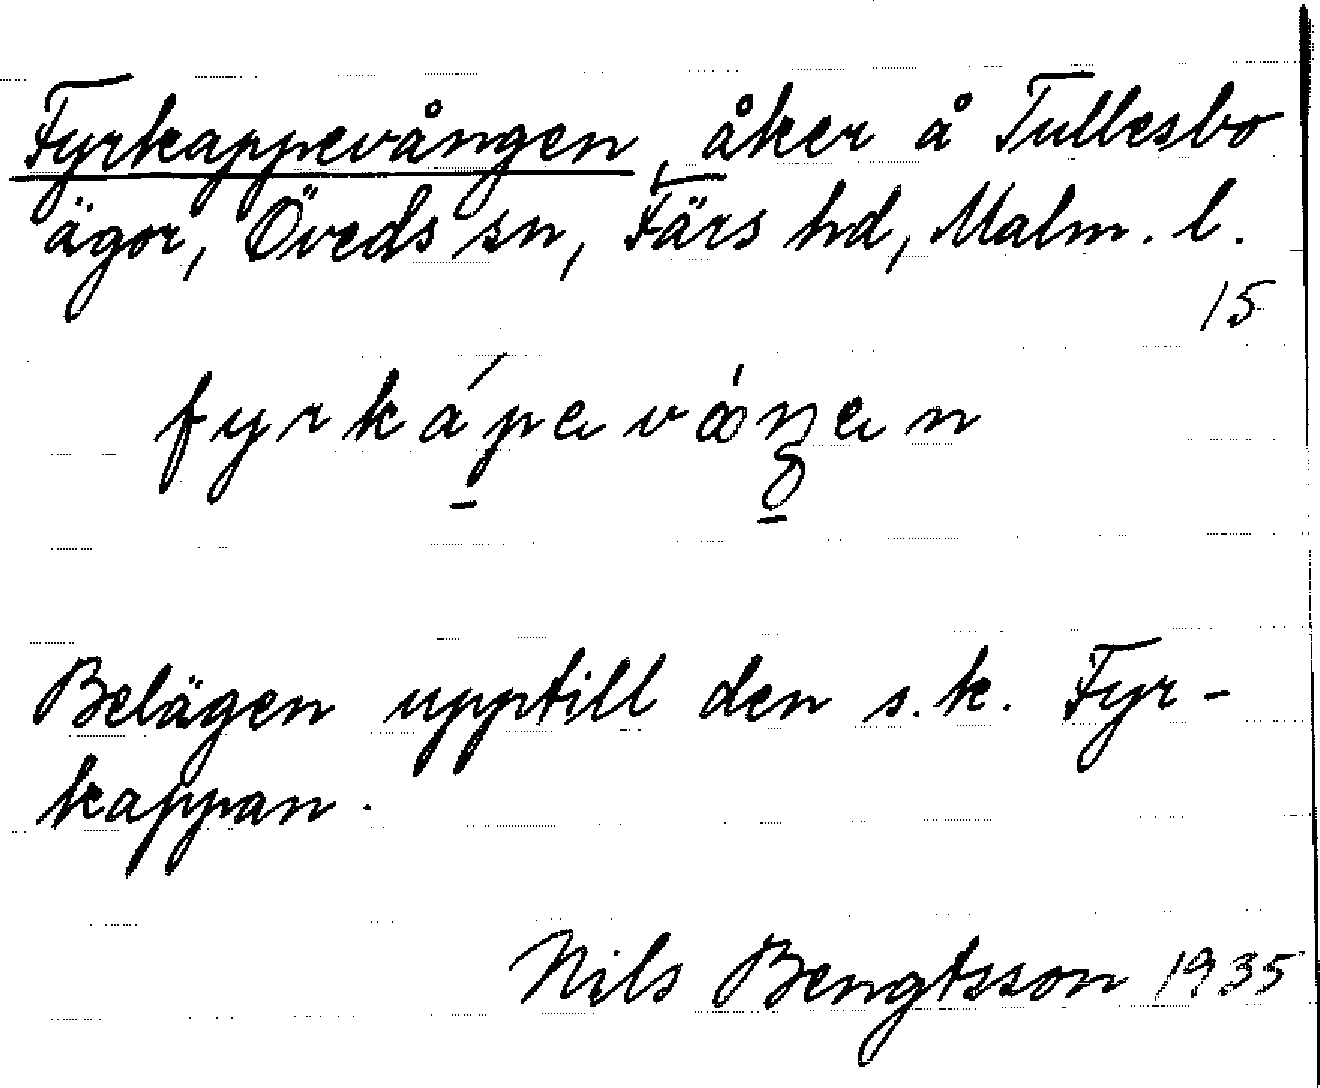 Fyrkappevången, åker å Tullesbo
ägor, Öveds sn, Färs hd, Malm. l.
15
fyrkápevåŋen
Belägen upptill den s.k. Fyr-
kappan.
Nils Bengtsson 1935